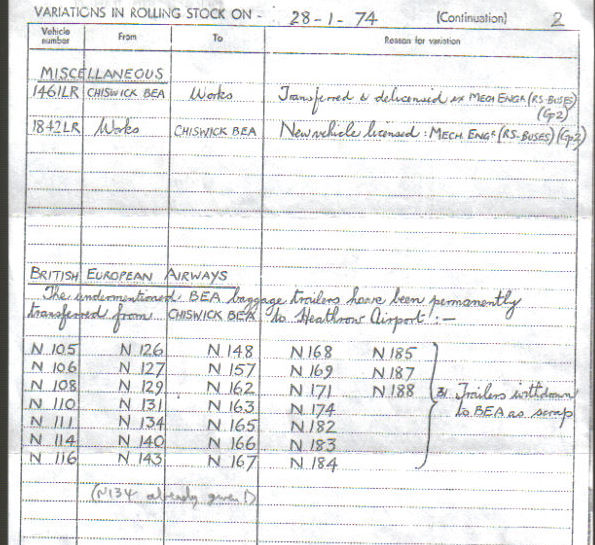 VARIATIONS IN ROLLING STOCK ON - 28-1-74 (Continuation) 2
Vehicle number From To Reason for variation
MISCELLANEOUS
1461LR CHISWICK BEA Works Transferred & delicensed ex MECH ENGR (RS-BUSES)
(G2)
1842LR Works CHISWICK BEA New vehicle licensed: MECH ENGR (RS-BUSES) (G2)
BRITISH EUROPEAN AIRWAYS
The undermentioned BEA baggage trailers have been permanently
transferred from CHISWICK BEA to Heathrow Airport:-
N 105 N 126 N 148 N 168 N 185
N 106 N 127 N 157 N 169 N 187
N 108 N 129 N 162 N 171 N 188 31 Trailers withdrawn
N 110 N 131 N 163 N 174 to BEA as scrap
N 111 N 134 N 165 N 182
N 114 N 140 N 166 N 183
N 116 N 143 N 167 N 184
(N134 already given!)